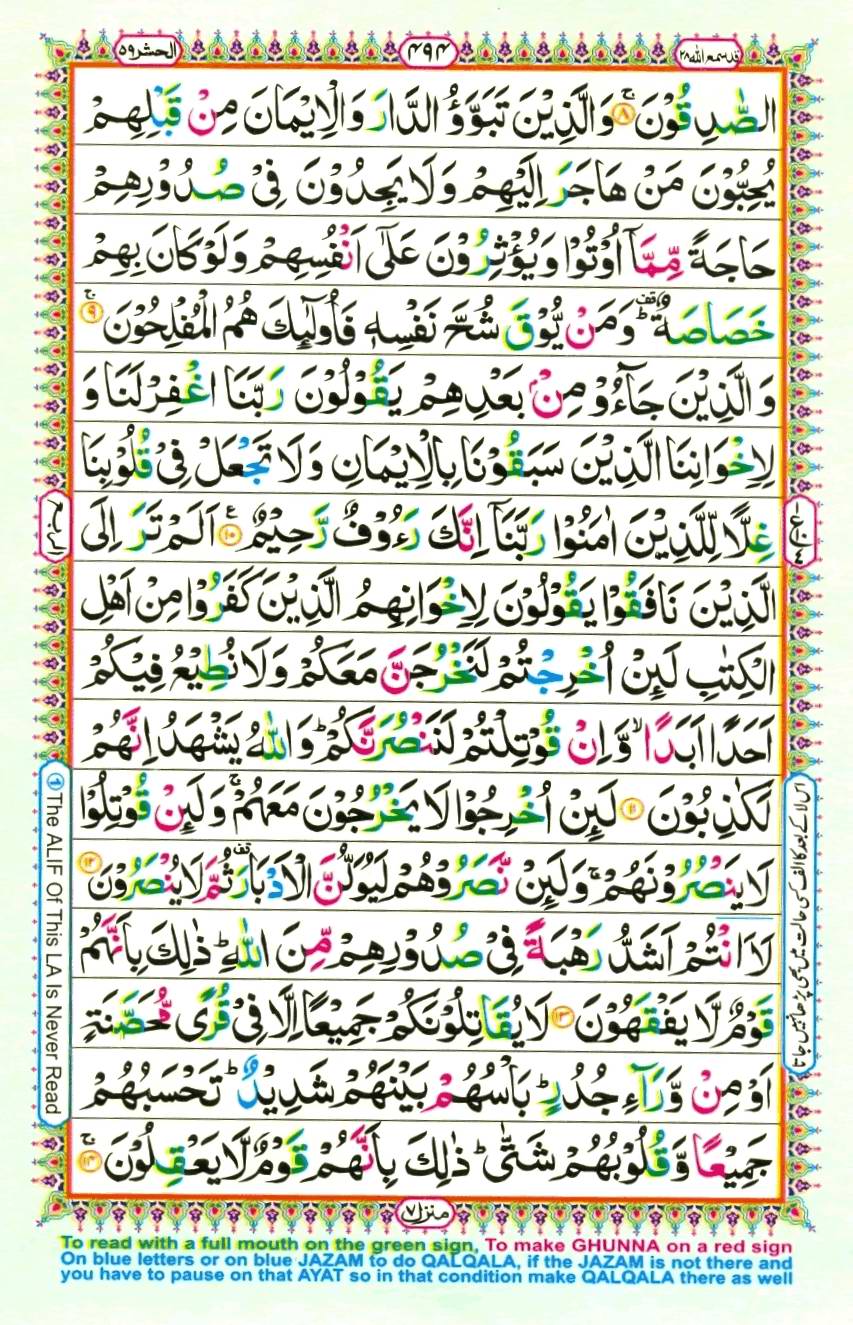 قد سمع الله ۲۸
۴۹۴
الحشر ۵۹
الصّٰدِقُوْنَ ۚ‏ ﴿۸﴾ وَالَّذِيْنَ تَبَوَّؤُ الدَّارَ وَالْاِيْمَانَ مِنْ قَبْلِهِمْ
يُحِبُّوْنَ مَنْ هَاجَرَ اِلَيْهِمْ وَلَا يَجِدُوْنَ فِىْ صُدُوْرِهِمْ
حَاجَةً مِّمَّاۤ اُوْتُوْا وَيُؤْثِرُوْنَ عَلٰٓى اَنْفُسِهِمْ وَلَوْ كَانَ بِهِمْ
خَصَاصَةٌ ؕ وَمَنْ يُّوْقَ شُحَّ نَفْسِهٖ فَاُولٰٓئِكَ هُمُ الْمُفْلِحُوْنَ ۚ ﴿۹﴾
وَالَّذِيْنَ جَآءُوْ مِنْۢ بَعْدِهِمْ يَقُوْلُوْنَ رَبَّنَا اغْفِرْ لَنَا وَ
لِاِخْوَانِنَا الَّذِيْنَ سَبَقُوْنَا بِالْاِيْمَانِ وَلَا تَجْعَلْ فِىْ قُلُوْبِنَا
غِلًّا لِّلَّذِيْنَ اٰمَنُوْا رَبَّنَاۤ اِنَّكَ رَءُوْفٌ رَّحِيْمٌ ﴿۱۰﴾ اَلَمْ تَرَ اِلَى
الَّذِيْنَ نَافَقُوْا يَقُوْلُوْنَ لِاِخْوَانِهِمُ الَّذِيْنَ كَفَرُوْا مِنْ اَهْلِ
الْكِتٰبِ لَئِنْ اُخْرِجْتُمْ لَنَخْرُجَنَّ مَعَكُمْ وَلَا نُطِيْعُ فِيْكُمْ
اَحَدًا اَبَدًا ۙ وَّاِنْ قُوْتِلْتُمْ لَنَنْصُرَنَّكُمْ ؕ وَاللّٰهُ يَشْهَدُ اِنَّهُمْ
لَكٰذِبُوْنَ ﴿۱۱﴾ لَئِنْ اُخْرِجُوْا لَا يَخْرُجُوْنَ مَعَهُمْ ۚ وَلَئِنْ قُوْتِلُوْا
لَا يَنْصُرُوْنَهُمْ ۚ وَلَئِنْ نَّصَرُوْهُمْ لَيُوَلُّنَّ الْاَدْبَارَ ثُمَّ لَا يُنْصَرُوْنَ ﴿۱۲﴾
لَا۟اَنْتُمْ اَشَدُّ رَهْبَةً فِىْ صُدُوْرِهِمْ مِّنَ اللّٰهِ ؕ ذٰلِكَ بِاَنَّهُمْ
قَوْمٌ لَّا يَفْقَهُوْنَ ﴿۱۳﴾ لَا يُقَاتِلُوْنَكُمْ جَمِيْعًا اِلَّا فِىْ قُرًى مُّحَصَّنَةٍ
اَوْ مِنْ وَّرَآءِ جُدُرٍ ؕ بَاْسُهُمْ بَيْنَهُمْ شَدِيْدٌ ؕ تَحْسَبُهُمْ
جَمِيْعًا وَّقُلُوْبُهُمْ شَتّٰى ؕ ذٰلِكَ بِاَنَّهُمْ قَوْمٌ لَّا يَعْقِلُوْنَ ۚ ﴿۱۴﴾
الربع
① The ALIF Of This LA Is Never Read
اس لا کے بعد کا الف کسی حالت میں بھی پڑھا نہیں جاتا
منزل ۷
To read with a full mouth on the green sign, To make GHUNNA on a red sign
On blue letters or on blue JAZAM to do QALQALA, if the JAZAM is not there and
you have to pause on that AYAT so in that condition make QALQALA there as well